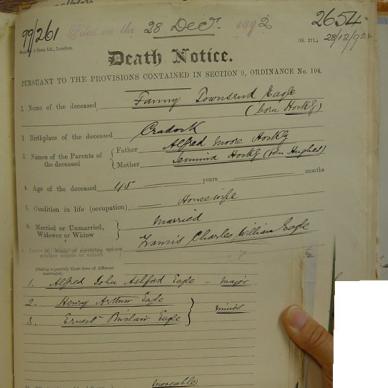 99/261 Filed on the 28 Decr. 1992 2654
28/12/92
Death Notice.
PURSUANT TO THE PROVISIONS CONTAINED IN SECTION 9, ORDINANCE No. 104.
1. Name of the deceased Fanny Townsend Eagle
(born Hockly)
2. Birthplace of the deceased Cradock
3. Names of the Parents of the deceased { Father Alfred Moore Hockly
Mother Jemima Hockly (born Hughes)
4. Age of the deceased 45 years months
5. Condition in life (occupation) Housewife
6. Married or Unmarried, Widower or Widow Married
Francis Charles William Eagle
1. Alfred John Ashford Eagle - major
2. Henry Arthur Eagle } minors
3. Ernest Eagle
moveable